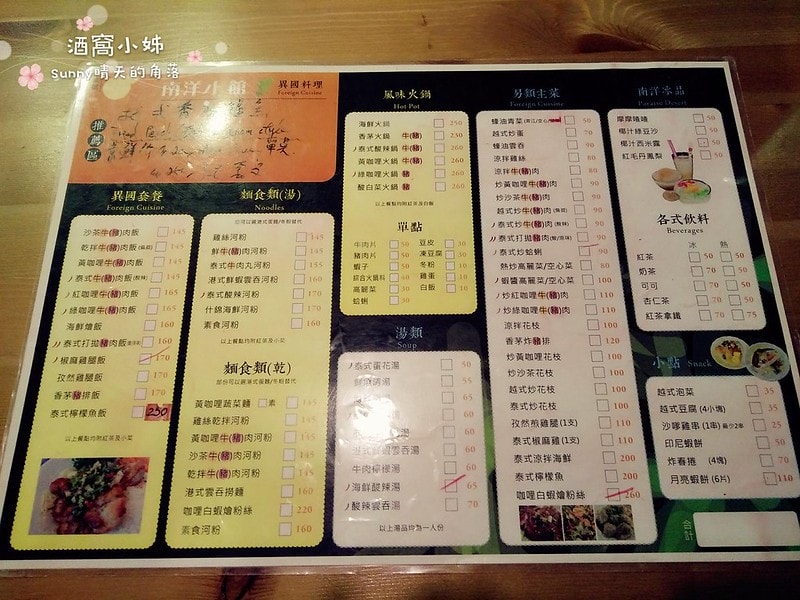 酒窩小姊
Sunny晴天的角落
南洋小館
異國料理
Foreign Cuisine
推薦區
異國套餐
Foreign Cuisine
沙茶牛(豬)肉飯 145
乾拌牛(豬)肉飯 145
黃咖哩牛(豬)肉飯 145
泰式牛(豬)肉飯 145
紅咖哩牛(豬)肉飯 165
綠咖哩牛(豬)肉飯 165
海鮮燴飯 160
泰式打拋豬肉飯 160
椒麻雞腿飯 170
孜然雞腿飯 170
香茅豬排飯 170
泰式檸檬魚飯 250
以上餐點均附紅茶及小菜
麵食類(湯)
Noodles
雞絲河粉 145
鮮牛(豬)肉河粉 145
泰式牛肉丸河粉 155
港式鮮蝦雲吞河粉 160
泰式酸辣河粉 170
什錦海鮮河粉 170
素食河粉 160
以上餐點均附紅茶及小菜
麵食類(乾)
黃咖哩蔬菜麵 素 145
雞絲乾拌河粉 145
黃咖哩牛(豬)肉河粉 145
沙茶牛(豬)肉河粉 145
乾拌牛(豬)肉河粉 145
港式雲吞撈麵 160
咖哩白蝦燴粉絲 220
素食河粉 160
風味火鍋
Hot Pot
海鮮火鍋 250
香茅火鍋 牛(豬) 230
泰式酸辣鍋 牛(豬) 260
黃咖哩火鍋 牛(豬) 260
綠咖哩火鍋 豬 260
酸白菜火鍋 豬 260
以上餐點均附紅茶及白飯
單點
牛肉片 50 豆皮 30
豬肉片 50 凍豆腐 30
蝦子 50 冬粉 20
綜合火鍋料 40 雞蛋 10
高麗菜 30 白飯 10
蛤蜊 50
湯類
Soup
泰式蛋花湯 50
55
60
60
60
牛肉檸檬湯 60
海鮮酸辣湯 65
酸辣雲吞湯 70
以上湯品均為一人份
另類主菜
Foreign Cuisine
蠔油青菜 50
越式炒蛋 70
蠔油雲吞 90
涼拌雞絲 80
涼拌牛(豬)肉 90
炒黃咖哩牛(豬)肉 90
炒沙茶牛(豬)肉 90
越式炒牛(豬)肉 90
泰式打拋豬肉 90
泰式炒蛤蜊 90
熱炒高麗菜/空心菜 80
蝦醬高麗菜/空心菜 80
炒紅咖哩牛(豬)肉 100
炒綠咖哩牛(豬)肉 100
涼拌花枝 100
香茅炸豬排 100
炒黃咖哩花枝 100
炒沙茶花枝 100
越式炒花枝 100
泰式炒花枝 100
孜然煎雞腿(1支) 110
泰式椒麻雞(1支) 110
泰式涼拌海鮮 200
泰式檸檬魚 200
咖哩白蝦燴粉絲 260
南洋冰品
摩摩喳喳 50
椰汁綠豆沙 50
椰汁西米露 50
紅毛丹鳳梨 50
各式飲料
Beverages
冰 熱
紅茶 50 50
奶茶 70 70
可可 70 70
杏仁茶 70 70
紅茶拿鐵 75 75
小點 Snack
越式泡菜 35
越式豆腐 (4小塊) 35
沙嗲雞串 (1串) 最少2串 25
印尼蝦餅 50
炸春捲 (4塊) 70
月亮蝦餅 (6片) 110
合計